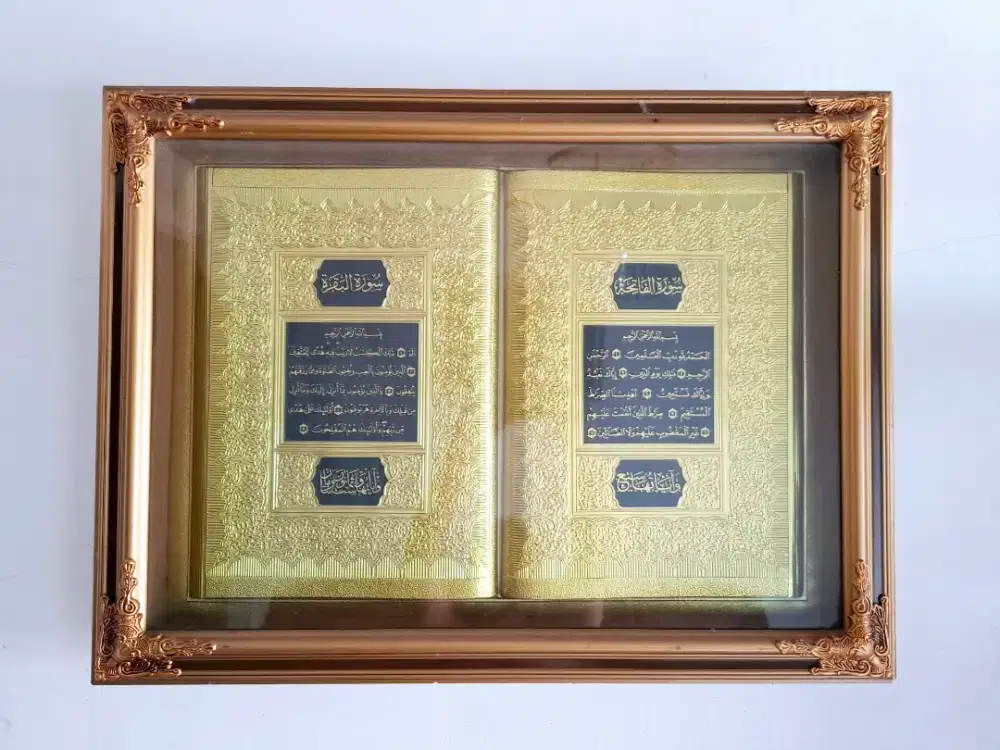 سورة الفاتحة
بسم الله الرحمن الرحيم
الحمد لله رب العلمين ۝ الرحمن
الرحيم ۝ ملك يوم الدين ۝ إياك نعبد
وإياك نستعين ۝ اهدنا الصراط
المستقيم ۝ صراط الذين أنعمت عليهم
غير المغضوب عليهم ولا الضالين ۝
وآياتها سبع
سورة البقرة
بسم الله الرحمن الرحيم
الم ۝ ذلك الكتب لا ريب فيه هدى للمتقين
۝ الذين يؤمنون بالغيب ويقيمون الصلوة ومما رزقنهم
ينفقون ۝ والذين يؤمنون بما أنزل إليك وما أنزل
من قبلك وبالآخرة هم يوقنون ۝ أولئك على هدى
من ربهم وأولئك هم المفلحون ۝
وآياتها مائتان وست وثمانون